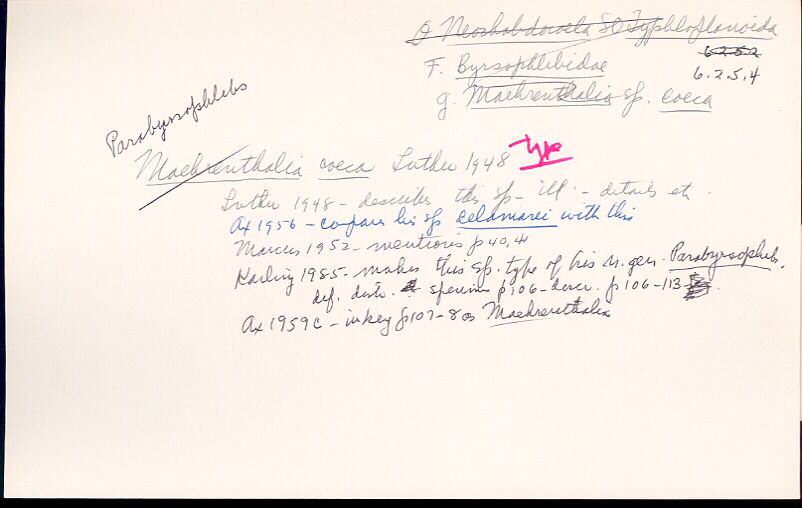 O Neorhabdocoela SO Typhloplanoida
6.2.5.2
F. Byrsophlebidae
6.2.5.4
g. Maehrenthalia sp. coeca
Parabyrsophlebs
Maehrenthalia coeca Luther 1948 Type
Luther 1948 - describes this sp - ill - details etc.
Ax 1956 - compares his sp delamarei with this
Marcus 1952 - mentions p 40, 41
Karling 1985 - makes this sp. type of his n. gen. Parabyrsophlebs,
def. distr. specimen p 106 - descr. p 106-113
Ax 1959c - in key p 107-8 as Maehrenthalia